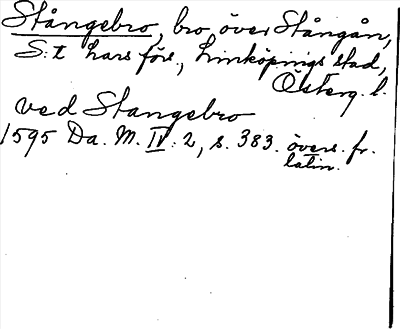 Stångebro, bro över Stångån,
S:t Larsförs., Linköpings stad,
Österg. l.
ved Stangebro
1595 Da. M. IV: 2, s. 383. övers. fr.
latin.